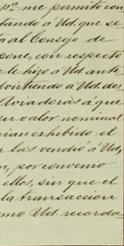 pª me permito con
tando á Ud que se
ta al Consejo de
sone, con respecto
le hizo á Ud ante
virtiendo á Ud. des
lloradoras á que
su valor nominal
bian exhibido el
las vendió á Ud,
n, por convenio
ellos, sin que el
la transaccion
omo Ud recorda